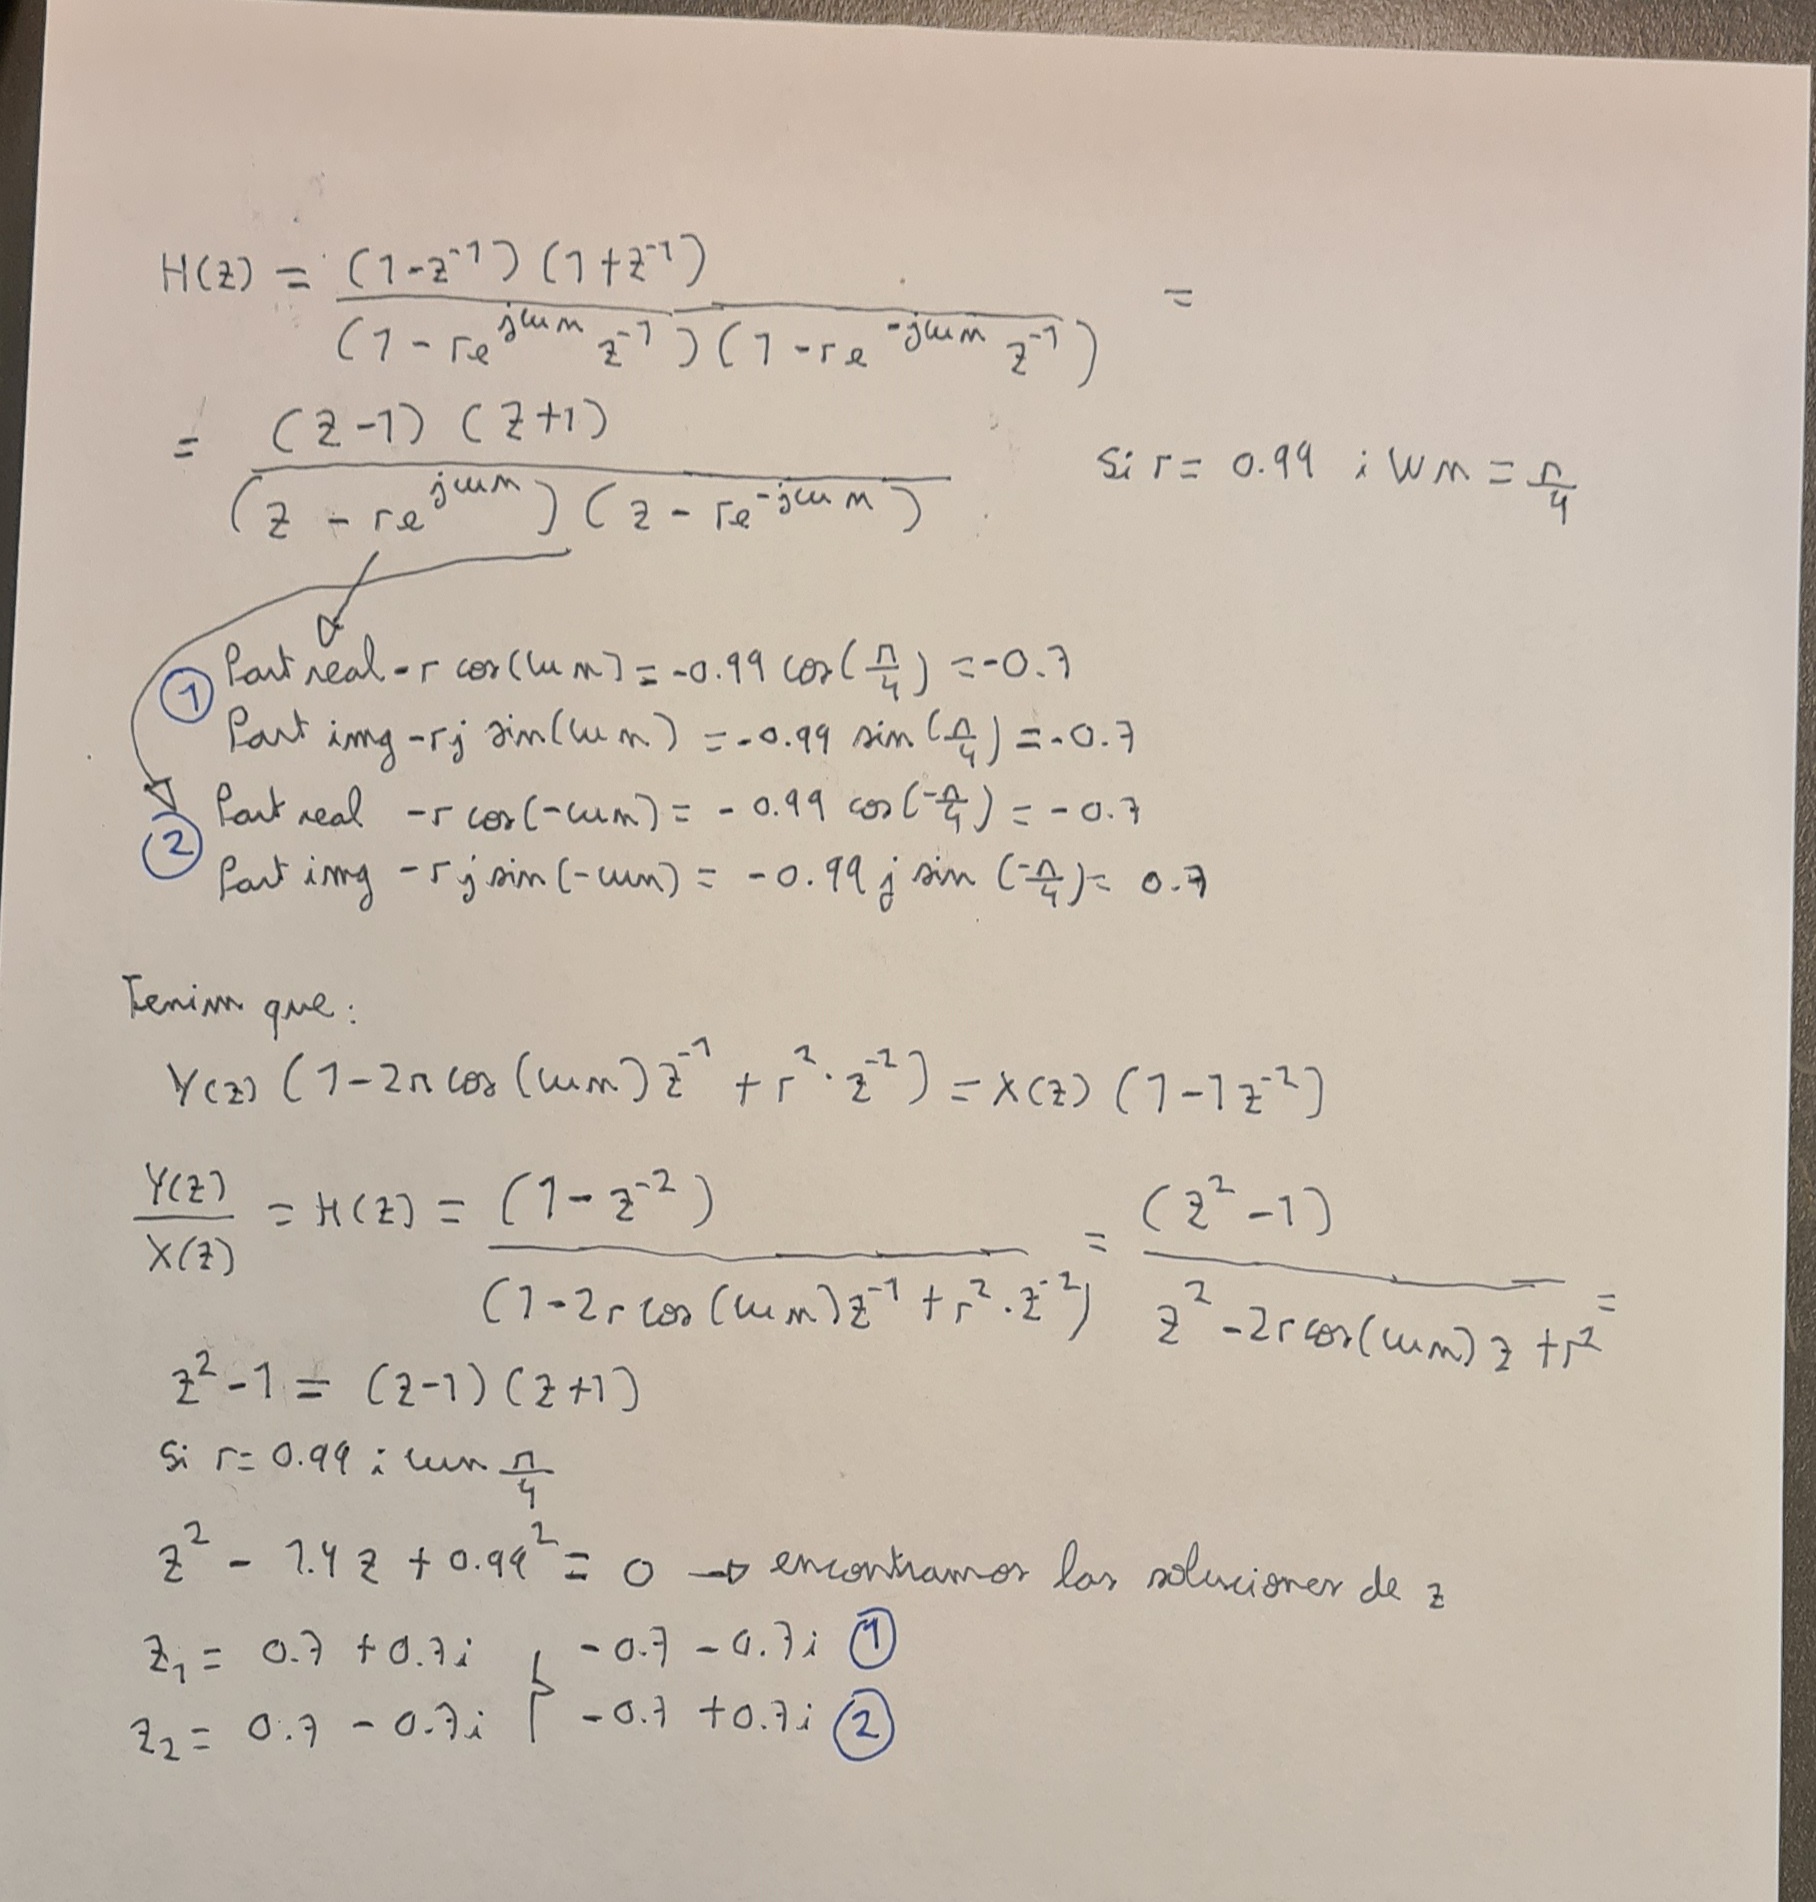 H(z) = (1-z⁻¹) (1+z⁻¹) / (1 - re^{jωn} z⁻¹) (1 - re^{-jωn} z⁻¹) =
= (z-1) (z+1) / (z - re^{jωn}) (z - re^{-jωn})
Si r = 0.99 i ωn = π/4
① Part real - r cos(ωn) = -0.99 cos(π/4) = -0.7
Part img - rj sin(ωn) = -0.99 sin(π/4) = -0.7
② Part real -r cos(-ωn) = - 0.99 cos(-π/4) = - 0.7
Part img - rj sin(-ωn) = - 0.99 j sin (-π/4) = 0.7
Tenim que:
Y(z) (1-2r cos(ωn) z⁻¹ + r²·z⁻²) = X(z) (1-1z⁻²)
Y(z)/X(z) = H(z) = (1-z⁻²) / (1-2r cos(ωn)z⁻¹ + r²·z⁻²) = (z²-1) / z² -2r cos(ωn) z + r² =
z²-1 = (z-1) (z+1)
Si r= 0.99 i ωn π/4
z² - 1.4 z + 0.99² = 0 → encontramos las soluciones de z
z₁ = 0.7 + 0.7i } -0.7 - 0.7i ①
z₂ = 0.7 - 0.7i } -0.7 + 0.7i ②